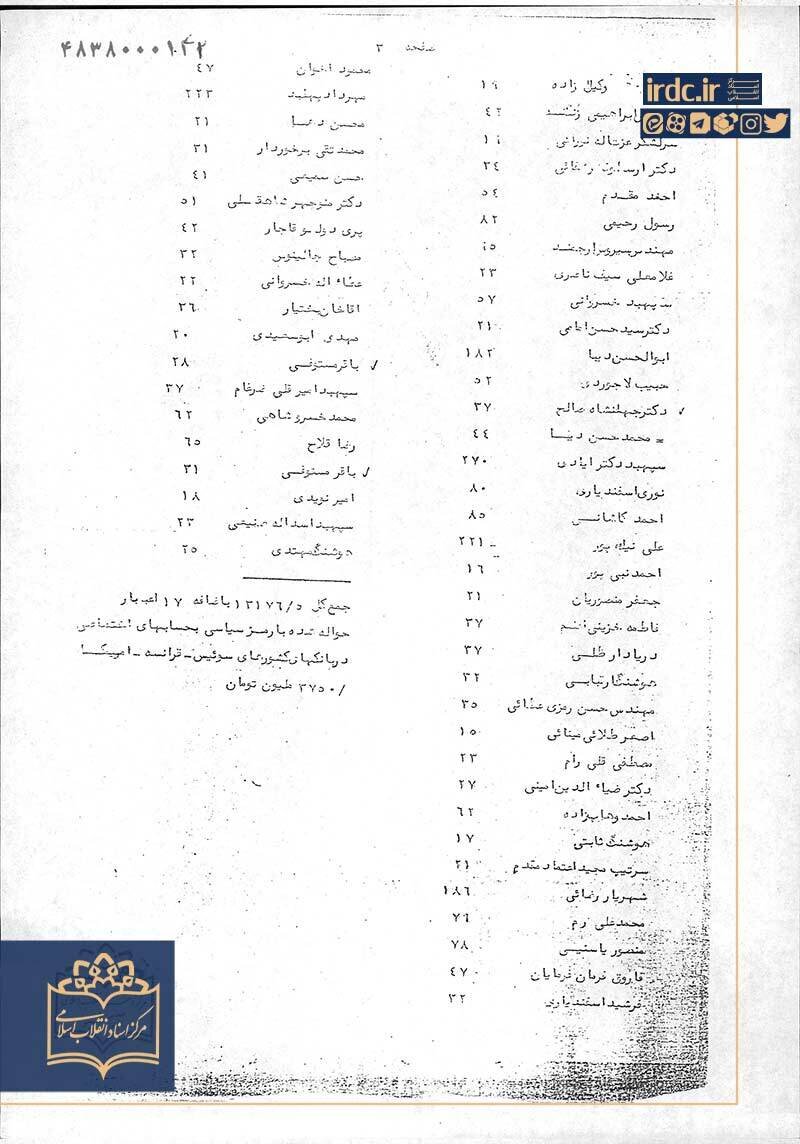 ۴۸۳۸۰۰۰۱۰۴۲
صفحه ۳
irdc.ir
مرکز اسناد انقلاب اسلامی
وکیل زاده ۱۹
ابراهیمی ۴۲
سرلشگر عزت‌اله ۱۹
دکتر ۳۴
احمد مقدم ۵۴
رسول رحیمی ۸۲
مهندس سیروس ارجمند
غلامعلی سیف ناصری ۲۳
سپهبد خسروانی ۵۷
دکتر سید حسن امامی ۲۱
ابوالحسن دیبا ۱۸۲
حبیب لاجوردی ۵۲
✓ دکتر جهانشاه صالح ۳۷
محمد حسن دیبا ۴۴
سپهبد دکتر ایادی ۲۷۰
نوری اسفندیاری ۸۰
احمد کاشانی ۸۵
علی نیک پور ۲۲۱
احمد نبی پور ۱۶
جعفر منصوریان ۲۱
فاطمه خزینی اعلم ۳۷
دریادار طلبی ۳۷
هوشنگ ارتیابی ۳۲
مهندس حسن رمزی عطائی ۳۵
اصغر طلائی مینائی ۱۵
مصطفی قلی رام ۲۳
دکتر ضیاء الدین امینی ۲۷
احمد وهابزاده ۶۲
هوشنگ ثابتی ۱۷
سرتیپ مجید اعتماد مقدم ۲۱
شهریار رنمائی ۱۸۶
محمد علی رم ۷۶
منصور یاسینی ۷۸
فاروق فرمان فرمایان ۴۷
فرشید اسفندیاری ۳۲
محمود اخوان ۴۷
مهرداد پهلبد ۲۲۳
محسن ۲۱
محمد تقی برخوردار ۳۱
حسن سمیعی ۴۱
دکتر منوچهر شاهقلی ۵۱
پری دولو قاجار ۴۲
مصباح جالینوس ۳۲
عطاء اله خسروانی ۲۲
اقاخان بختیار ۳۶
مهدی ابوسعیدی ۲۰
✓ باقر مستوفی ۲۸
سپهبد امیر قلی ضرغام ۳۷
محمد خسرو شاهی ۶۲
رضا فلاح ۶۵
✓ باقر مستوفی ۳۱
امیر نویدی ۱۸
سپهبد اسداله صنیعی ۲۳
هوشنگ مهتدی ۲۵
جمع کل ۱۳۱۷۶/۵ باضافه ۱۷ اعتبار
حواله شده با رمز سیاسی بحسابهای اختصاصی
در بانکهای کشورهای سوئیس - فرانسه - امریکا
۳۷۵۰/ ملیون تومان
مرکز اسناد انقلاب اسلامی